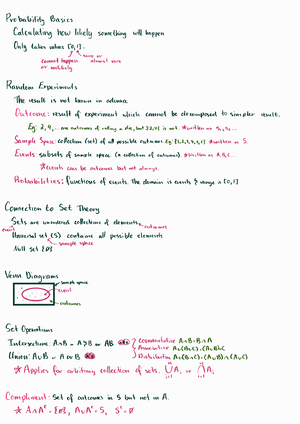 Probability Basics
Calculating how likely something will happen
Only takes values [0,1].
cannot happen
or unlikely
sure or
almost sure
Random Experiments
The result is not known in advance
Outcome: result of experiment which cannot be decomposed to simpler result.
Eg: 2, 4, ... are outcomes of rolling a die, but {2,4} is not. *written as S₁, S₂...
Sample Space: collection (set) of all possible outcomes. Eg {1,2,3,4,5,6} *written as S.
Events: subsets of sample space (a collection of outcomes) *written as A, B, C...
*events can be outcomes but not always.
Probabilities: functions of events. The domain is events & range is [0,1]
Connection to Set Theory
Sets are unordered collections of elements
events
outcomes
Universal set (S) contains all possible elements
sample space
Null set {Ø}
Venn Diagrams
sample space
event
outcomes
Set Operations
Intersection: A∩B = A & B or AB
Union: A∪B = A or B
Commutative A∩B=B∩A
Associative A∪(B∪C)=(A∪B)∪C
Distributive A∪(B∩C)=(A∪B)∩(A∪C)
* Applies for arbitrary collection of sets. ∪Aᵢ or ∩Aᵢ
Compliment: Set of outcomes in S but not in A.
* A∩Aᶜ = {Ø}, A∪Aᶜ = S, Sᶜ = Ø